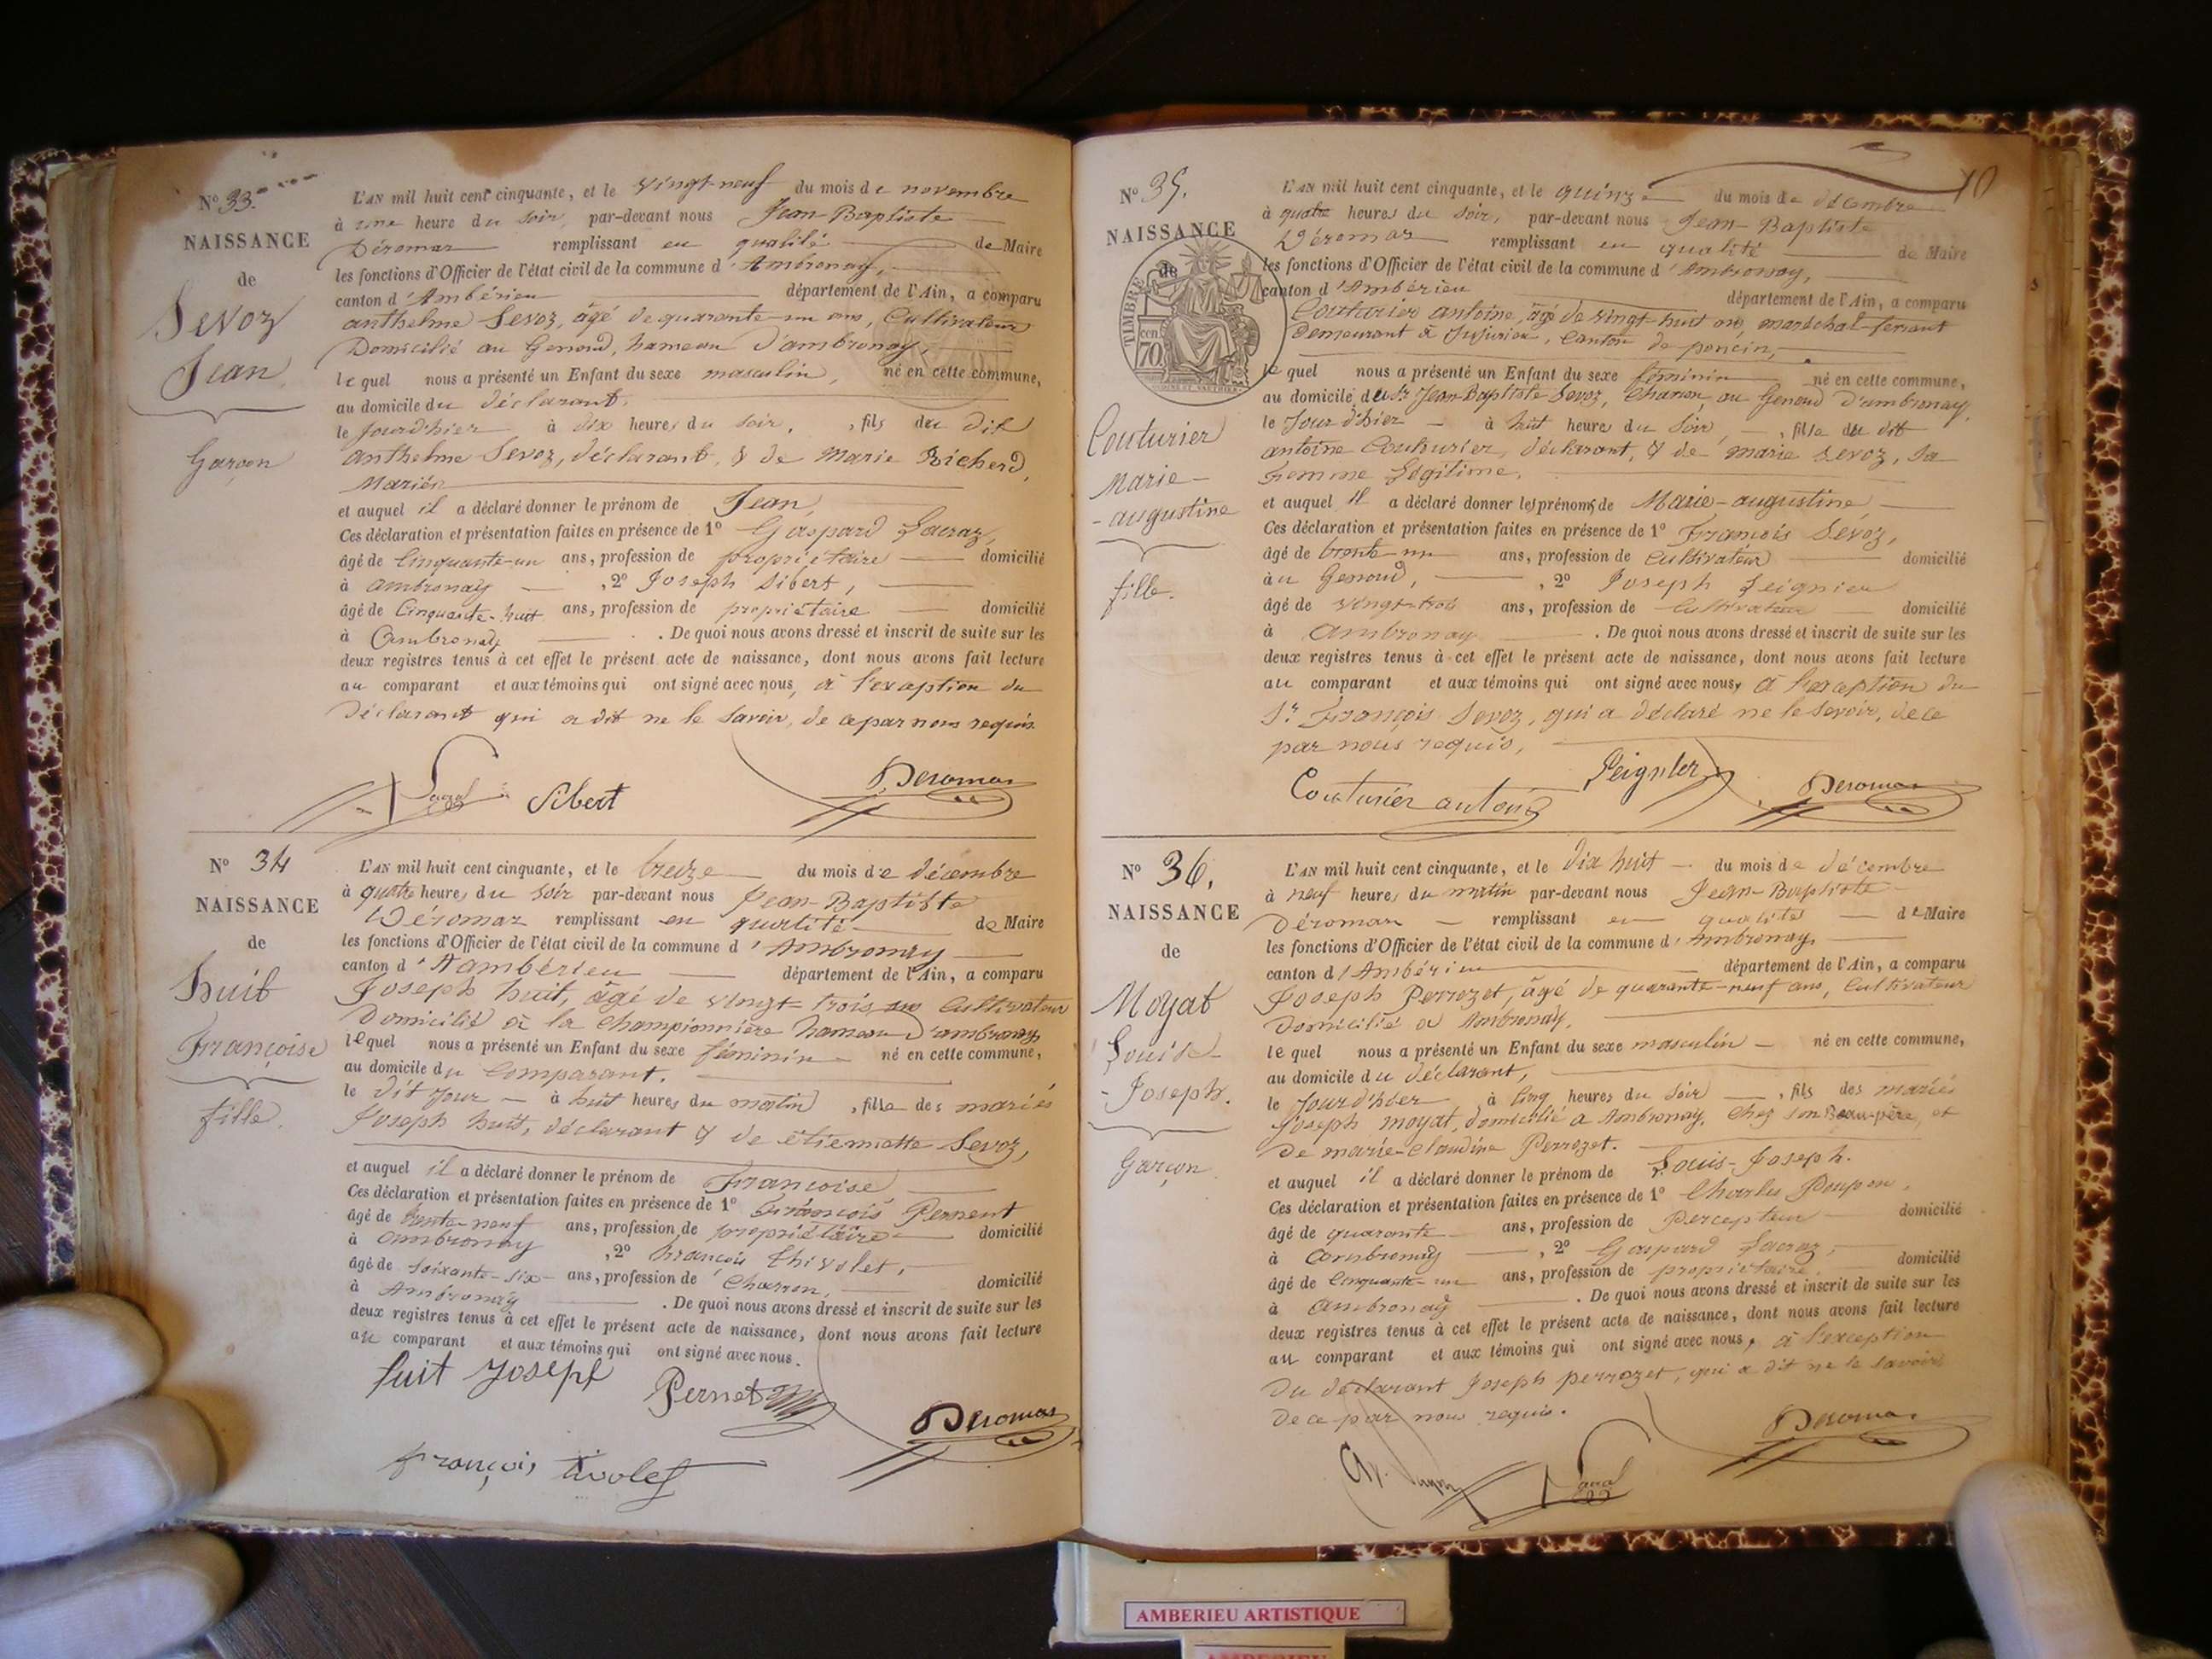 N° 33.
NAISSANCE
de
Sevoz
Jean
Garçon
L'AN mil huit cent cinquante, et le vingt-neuf du mois de novembre
à une heure du soir, par-devant nous Jean-Baptiste
Déromas remplissant en qualité de Maire
les fonctions d'Officier de l'état civil de la commune d'Ambronay,
canton d'Ambérieu département de l'Ain, a comparu
anthelme Sevoz, âgé de quarante-un ans, Cultivateur
Domicilié au Genoud, hameau d'ambronay,
lequel nous a présenté un Enfant du sexe masculin, né en cette commune,
au domicile du déclarant.
le jour d'hier à dix heures du soir, fils du dit
anthelme Sevoz, déclarant, & de Marie Richerd,
Mariés
et auquel il a déclaré donner le prénom de Jean,
Ces déclaration et présentation faites en présence de 1° Gaspard Lacraz,
âgé de Cinquante-un ans, profession de propriétaire domicilié
à ambronay, 2° Joseph Sibert,
âgé de Cinquante-huit ans, profession de propriétaire domicilié
à Ambronay. De quoi nous avons dressé et inscrit de suite sur les
deux registres tenus à cet effet le présent acte de naissance, dont nous avons fait lecture
au comparant et aux témoins qui ont signé avec nous, à l'exception du
Déclarant qui a dit ne le savoir, de ce par nous requis.
Sibert Deromas
N° 34
NAISSANCE
de
huit
Françoise
fille.
L'AN mil huit cent cinquante, et le treize du mois de décembre
à quatre heures du soir par-devant nous Jean-Baptiste
Déromas remplissant en qualité de Maire
les fonctions d'Officier de l'état civil de la commune d'Ambronay
canton d'Ambérieu département de l'Ain, a comparu
Joseph huit, âgé de vingt-trois ans Cultivateur
Domicilié à la Championnière hameau d'ambronay
lequel nous a présenté un Enfant du sexe féminin né en cette commune,
au domicile du Comparant.
le dit jour à huit heures du matin, fille des mariés
Joseph huit, déclarant & de étiennette Sevoz,
et auquel il a déclaré donner le prénom de Françoise
Ces déclaration et présentation faites en présence de 1° François Pernent
âgé de trente-neuf ans, profession de propriétaire domicilié
à ambronay, 2° François Thivolet,
âgé de soixante-six ans, profession de Charron, domicilié
à Ambronay. De quoi nous avons dressé et inscrit de suite sur les
deux registres tenus à cet effet le présent acte de naissance, dont nous avons fait lecture
au comparant et aux témoins qui ont signé avec nous.
huit joseph Pernet
Deromas
françois tivolet
10
N° 35.
NAISSANCE
de
TIMBRE
cen
70
Couturier
Marie-
-augustine
fille.
L'AN mil huit cent cinquante, et le quinze du mois de décembre
à quatre heures du soir, par-devant nous Jean-Baptiste
Déromas remplissant en qualité de Maire
les fonctions d'Officier de l'état civil de la commune d'Ambronay,
canton d'Ambérieu département de l'Ain, a comparu
Couturier antoine, âgé de vingt-huit ans, maréchal-ferrant
demeurant à Jujurieu, Canton de poncin,
lequel nous a présenté un Enfant du sexe féminin né en cette commune,
au domicile du Sr Jean Baptiste Sevoz, Charron, au Genoud d'ambronay,
le jour d'hier à huit heures du soir, fille du dit
antoine Couturier, déclarant, & de marie Sevoz, sa
femme Légitime.
et auquel il a déclaré donner les prénoms de Marie-augustine,
Ces déclaration et présentation faites en présence de 1° François Sevoz,
âgé de trente-un ans, profession de Cultivateur domicilié
au Genoud, 2° Joseph Peignier
âgé de vingt-trois ans, profession de Cultivateur domicilié
à Ambronay. De quoi nous avons dressé et inscrit de suite sur les
deux registres tenus à cet effet le présent acte de naissance, dont nous avons fait lecture
au comparant et aux témoins qui ont signé avec nous, à l'exception du
Sr François Sevoz, qui a déclaré ne le savoir, de ce
par nous requis,
Couturier antoine Peignier Deromas
N° 36.
NAISSANCE
de
Moyat
Louis-
-Joseph.
Garçon
L'AN mil huit cent cinquante, et le dix huit du mois de décembre
à neuf heures du matin par-devant nous Jean-Baptiste
Déromas remplissant en qualité de Maire
les fonctions d'Officier de l'état civil de la commune d'Ambronay,
canton d'Ambérieu département de l'Ain, a comparu
Joseph Perrozet, âgé de quarante-neuf ans, Cultivateur
Domicilié à Ambronay,
lequel nous a présenté un Enfant du sexe masculin né en cette commune,
au domicile du déclarant,
le jour d'hier à cinq heures du soir, fils des mariés
Joseph moyat, domicilié à Ambronay, chez son Beau-père, et
de marie-Claudine Perrozet.
et auquel il a déclaré donner le prénom de Louis-Joseph.
Ces déclaration et présentation faites en présence de 1° Charles Poupon,
âgé de quarante ans, profession de Percepteur domicilié
à Ambronay, 2° Gaspard Lacraz,
âgé de Cinquante-un ans, profession de propriétaire domicilié
à Ambronay. De quoi nous avons dressé et inscrit de suite sur les
deux registres tenus à cet effet le présent acte de naissance, dont nous avons fait lecture
au comparant et aux témoins qui ont signé avec nous, à l'exception
du déclarant Joseph perrozet, qui a dit ne le savoir
de ce par nous requis.
Deromas
AMBERIEU ARTISTIQUE
AMBERIEU